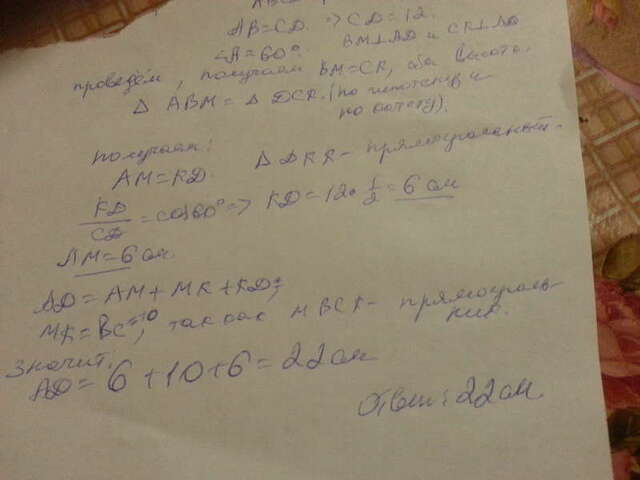 AB=CD. => CD=12.
∠A=60°.
проведём, BM⊥AD и CK⊥AD
получаем BM=CK, оба высоты.
Δ ABM = Δ DCK. (по гипотенузе и
по катету).
получаем:
AM=KD. Δ DKK - прямоугольный.
KD/CD = cos60° => KD=12·1/2=6 см
AM=6 см.
AD=AM+MK+KD;
MK=BC=10, так как MBCK- прямоуголь-
ник.
значит,
AD=6+10+6=22см
Ответ: 22см